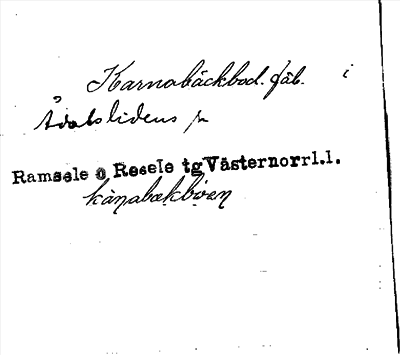 Karnabäckbod. fäb. i
Ådalslidens sn
Ramsele o Resele tg Västernorrl.l.
kàṇabækbòen